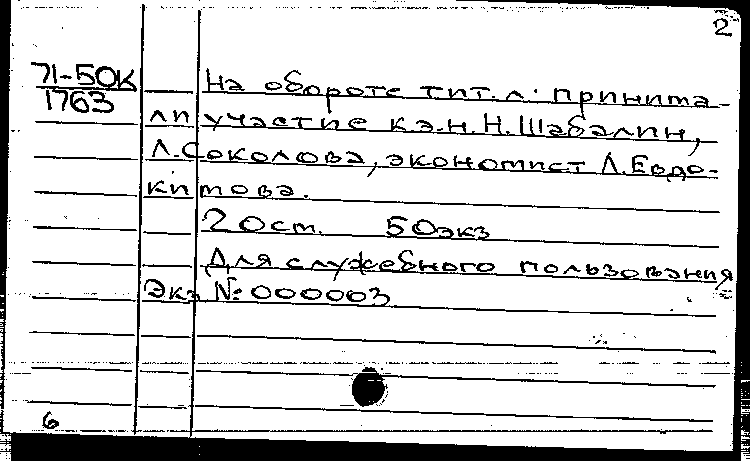 2
71-50к
1763
На обороте тит. л: принима-
ли участие к.э.н. Н. Шабалин,
Л. Соколова, экономист Л. Евдо-
кимова.
20 ст. 50 экз
Для служебного пользования
Экз № 000003
6